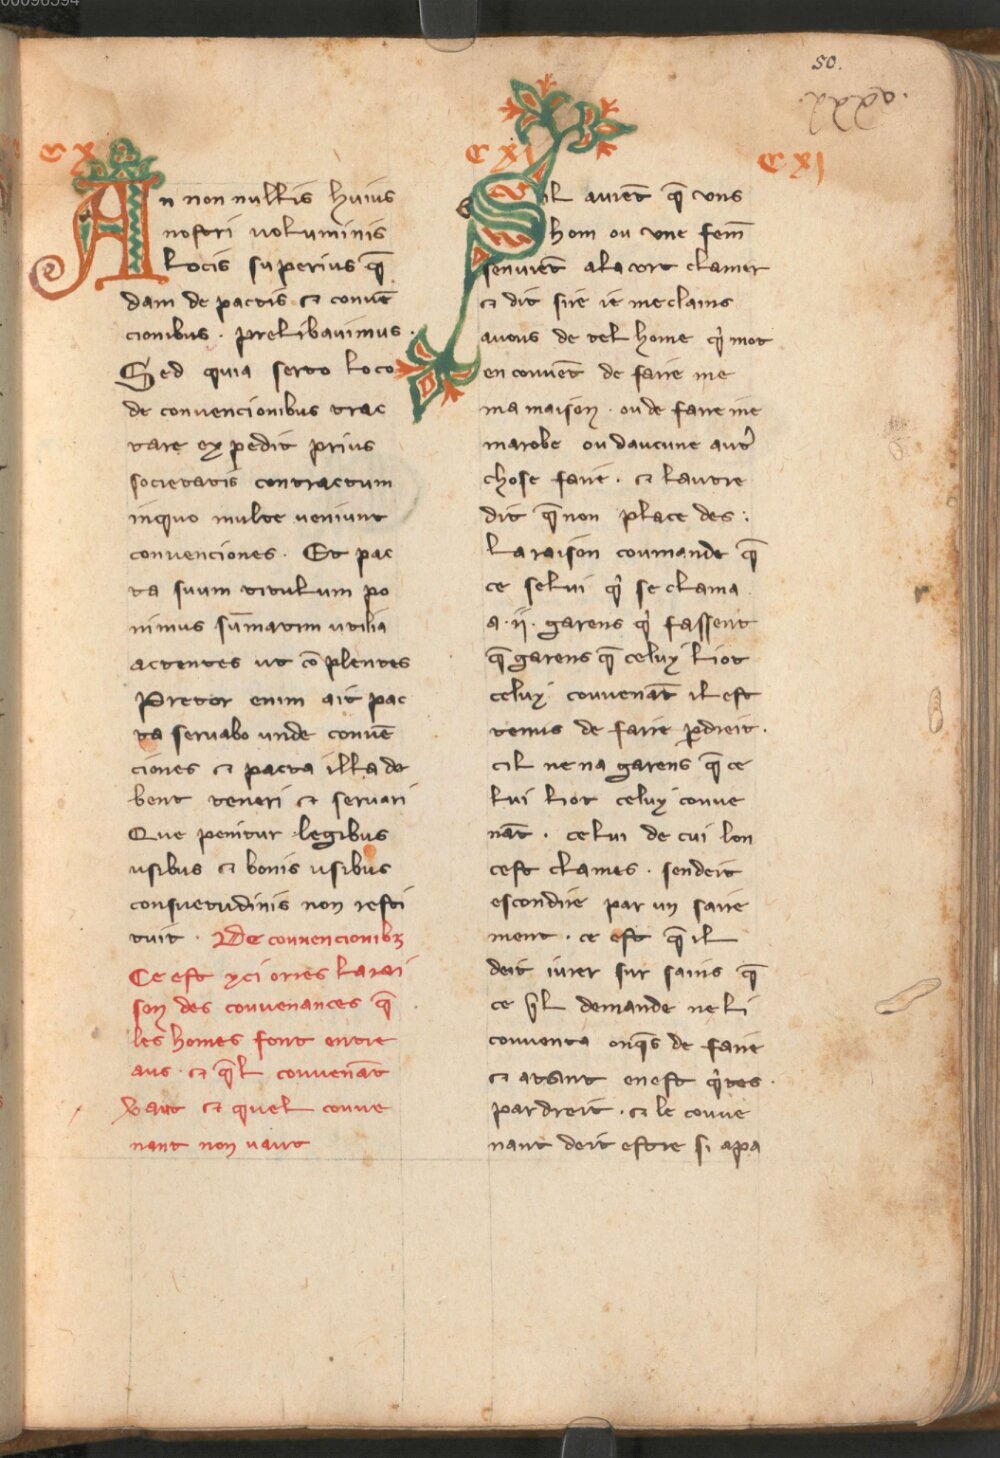 00096394
50.
CX
An non nullis huius
nostri voluminis
locis superius q̄
dam de pactis ⁊ convē
cionibus · prelibavimus ·
Sed quia serto loco
de convencionibus trac
tare expedit prius
societatis contractum
inquo multe veniunt
convenciones · Et pac
ta suum titulum po
nimus sūmatim utilia
actentes ut cōplentes
Pretor enim ait pac
ta servabo unde convē
ciones ⁊ pacta illa de
bent teneri ⁊ servari
Que penitur legibus
usibus ⁊ bonis usibus
consuetudinis non resti
tuit · De convencionibꝫ
Ce est yci orres la rai
son des convenances q̄
les homes font entre
aus · ⁊ q̄l convenāt
vaut ⁊ quel conve
nant non vaut
CXI
CXI
Sil avient q̄ vns
hom ou vne fem̄
senvient ala cort clamer
⁊ dit sire ie me clains
avous de tel home q̇ mot
en convent de faire me
ma maison · ou de faire me
marobe ou daucune autʾ
chose faire · ⁊ lautre
dit q̄ non place des :
la raison coumande q̄
ce selui q̇ se clama
a · ii · garens q̇ fassent
q̄ garens q̄ celuy li ot
celuy convenāt il est
tenus de faire ꝑ dreit ·
cil ne na garens q̄ ce
lui li ot celuy conve
nāt · celui de cui lon
cest clames · sen deit
escondire par un saire
ment · ce est q̄ il
deit iurer sur sains q̄
ce q̄l demande ne li
conventa onq̄s de faire
⁊ atant en est q̇tes ·
par dreit · ⁊ le conve
nant deit estre si apa